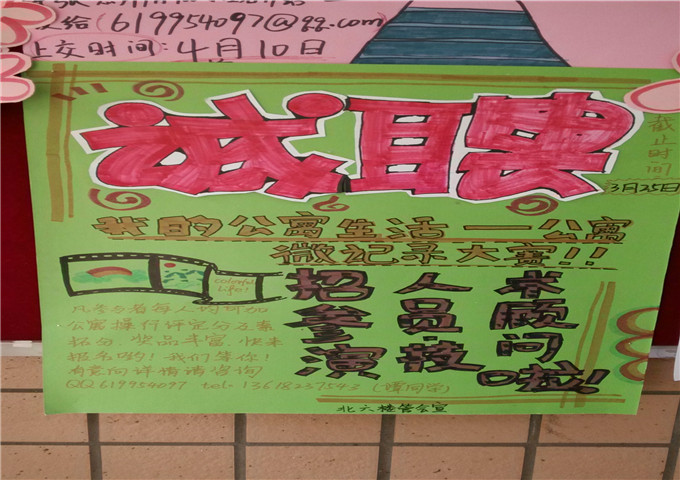 给(619954097@qq.com)
上交时间:4月10日
诚聘
截止时间
3月25日
我的公寓生活——公寓
微记录大赛!!
colorful
life!
招 人 来
参 员·顾
演 技 问
啦!
凡参与者每人均可加
公寓操行评定分及素
拓分,奖品丰富,快来
报名哟!我们等你!
有意向详情请咨询
QQ619954097 tel- 13618237543 (谭同学)
北六楼管会宣